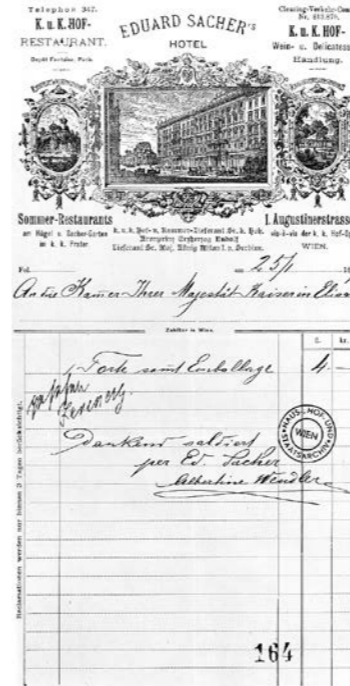 Telephon 347.
K. u. K. HOF-
RESTAURANT.
EDUARD SACHER'S
HOTEL
K. u. K. HOF-
Wein- u. Delicatess
Handlung.
Sommer-Restaurants
am Hügel u. Sacher-Garten
im k. k. Prater.
k. u. k. Hof- u. Kammer-Lieferant Sr. k. Hoh.
Kronprinz Erzherzog Rudolf
Lieferant Sr. Maj. König Milan I. v. Serbien.
I. Augustinerstrasse
vis-à-vis der k. k. Hof-Op
WIEN.
25/1
An die Kammer Ihrer Majestät Kaiserin Elisa
Zahlbar in Wien.
fl. kr.
1 Torte samt Emballage 4.—
Dankend saldiert
per Ed. Sacher
Albertine Wendler
HAUS-, HOF- UND STAATSARCHIV
WIEN
Reclamationen werden nur binnen 3 Tagen berücksichtigt.
164